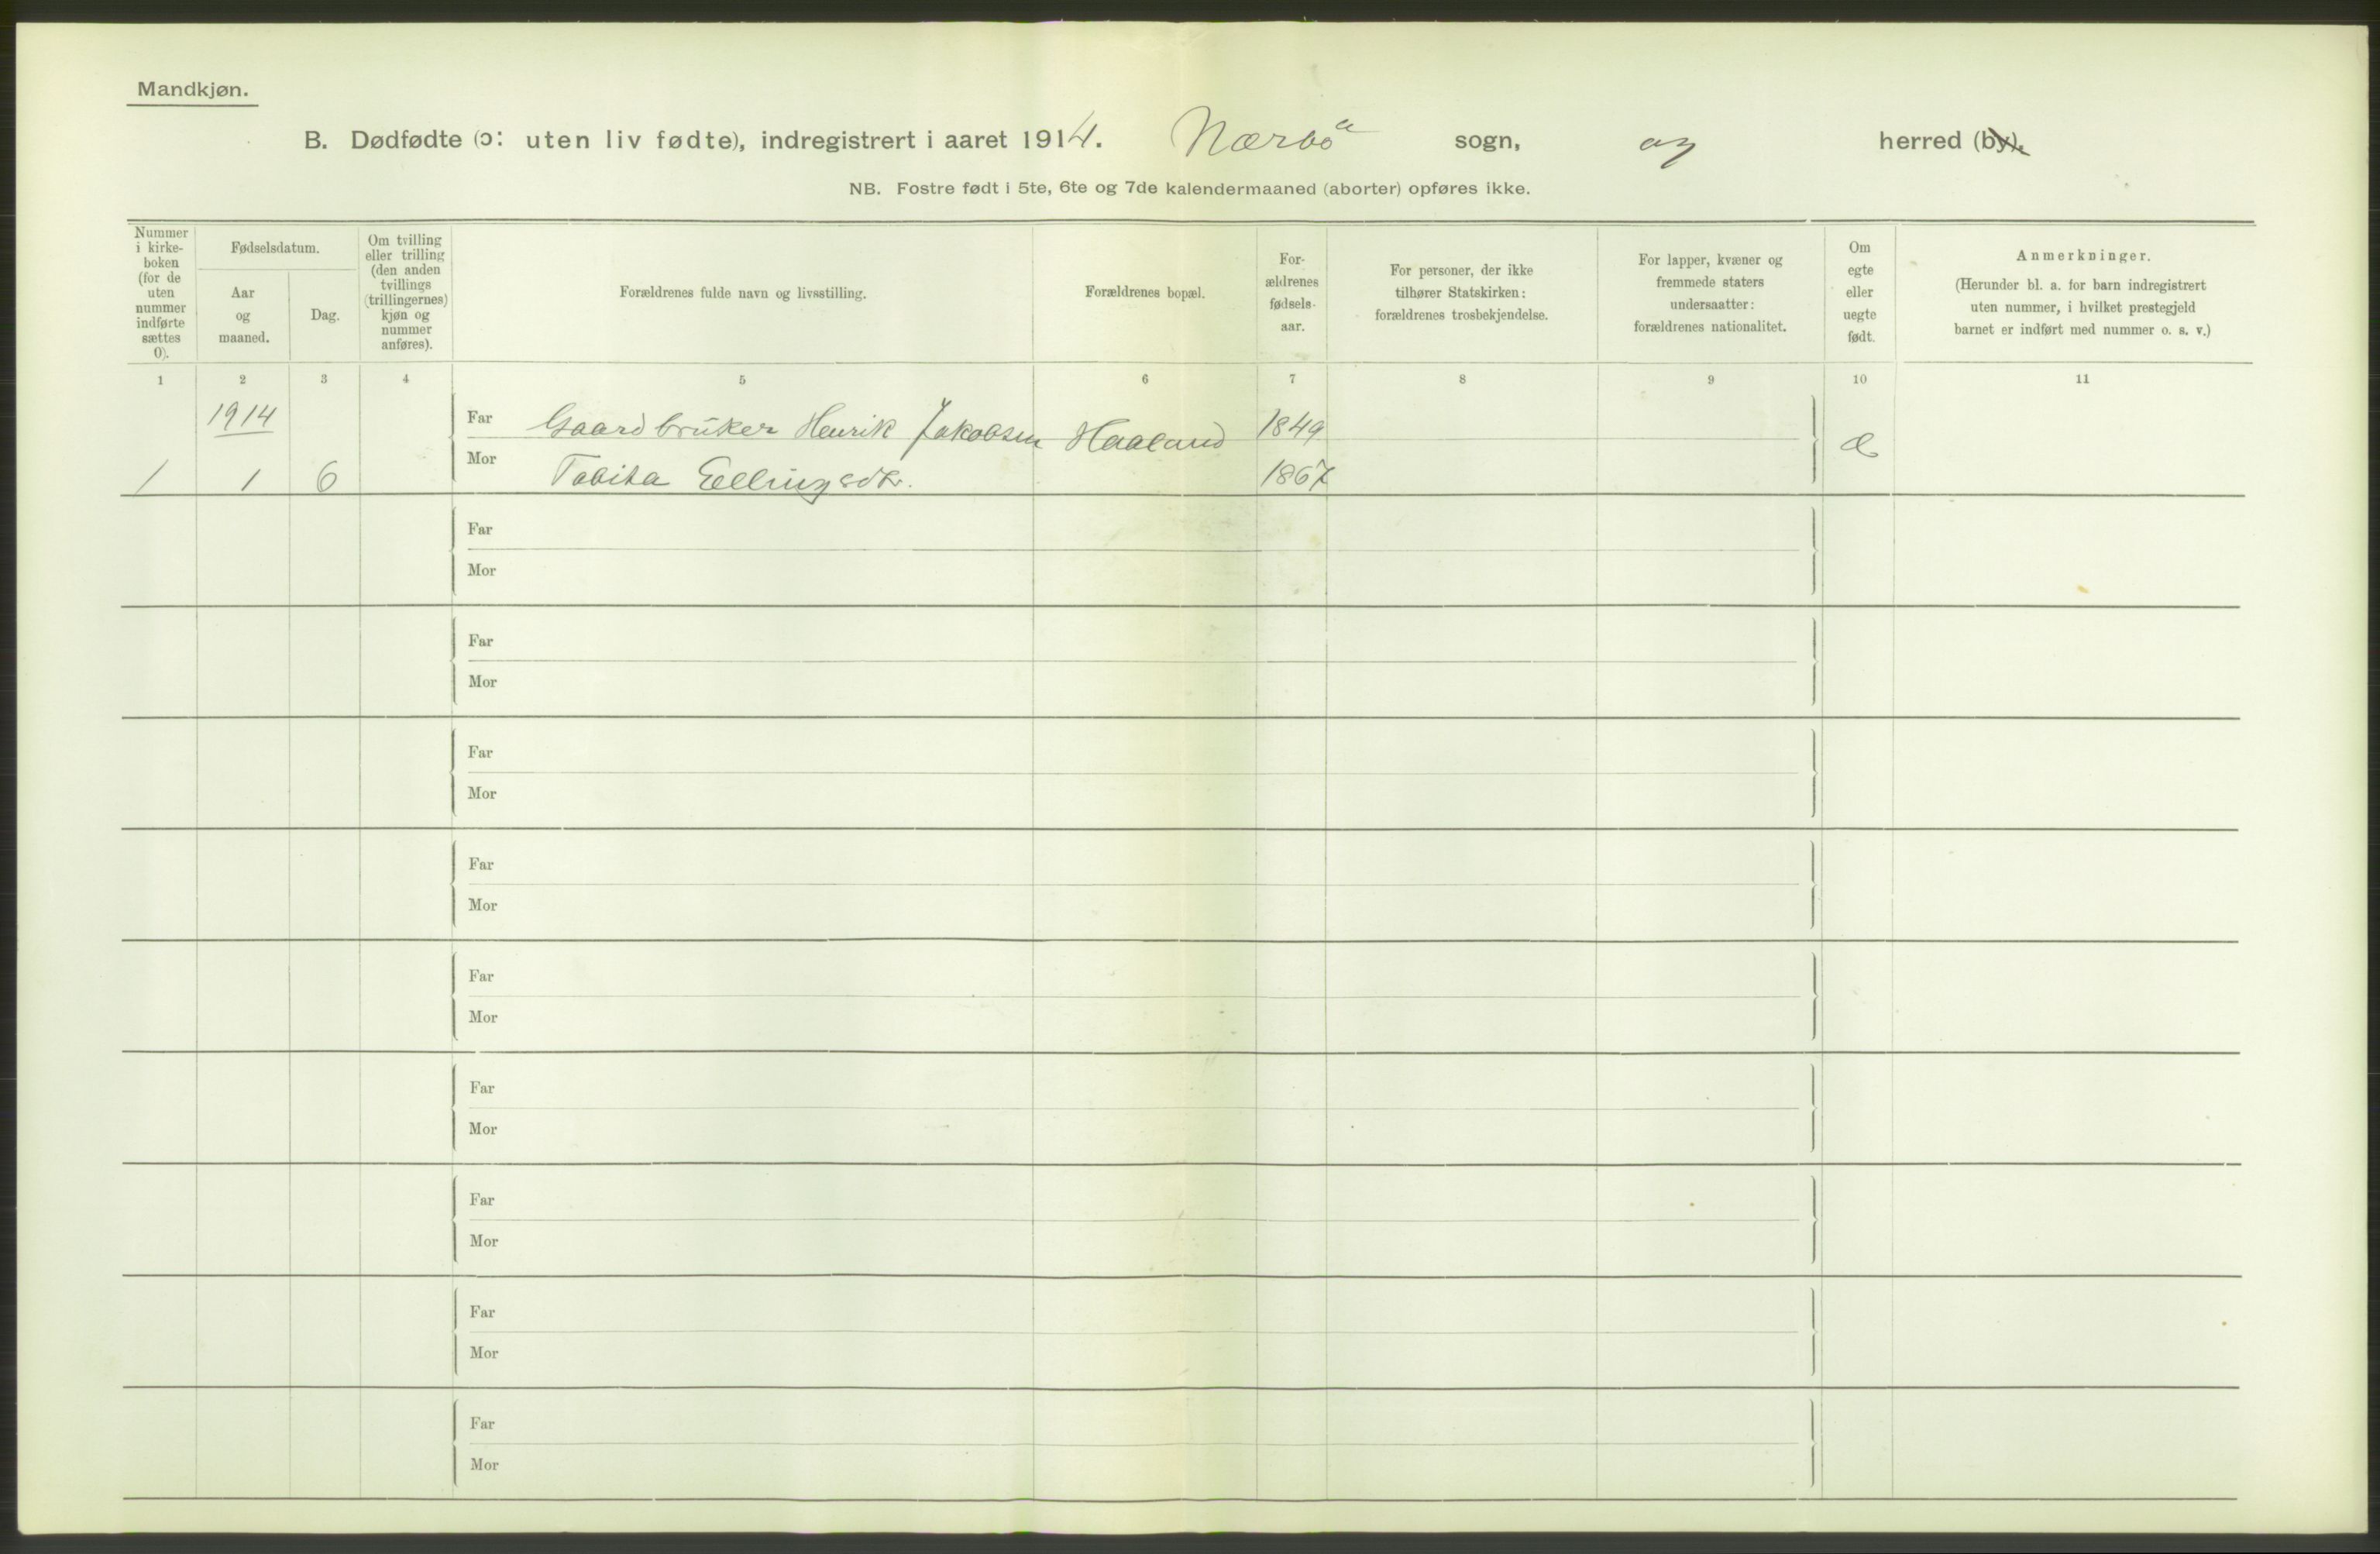 Mandkjøn.
B. Dødfødte (ɔ: uten liv fødte), indregistrert i aaret 1914. Nærbø sogn, og herred (by).
NB. Fostre født i 5te, 6te og 7de kalendermaaned (aborter) opføres ikke.
Nummer
i kirke-
boken
(for de
uten
nummer
indførte
sættes
0).
Fødselsdatum.
Aar
og
maaned.
Dag.
Om tvilling
eller trilling
(den anden
tvillings
(trillingernes)
kjøn og
nummer
anføres).
Forældrenes fulde navn og livsstilling.
Forældrenes bopæl.
For-
ældrenes
fødsels-
aar.
For personer, der ikke
tilhører Statskirken:
forældrenes trosbekjendelse.
For lapper, kvæner og
fremmede staters
undersaatter:
forældrenes nationalitet.
Om
egte
eller
uegte
født.
Anmerkninger.
(Herunder bl. a. for barn indregistrert
uten nummer, i hvilket prestegjeld
barnet er indført med nummer o. s. v.)
1 2 3 4 5 6 7 8 9 10 11
1914 Far Gaardbruker Henrik Jakobsen Haaland 1849 Æ
1 1 6 Mor Tabita Ellingsdtr. 1867
Far
Mor
Far
Mor
Far
Mor
Far
Mor
Far
Mor
Far
Mor
Far
Mor
Far
Mor
Far
Mor